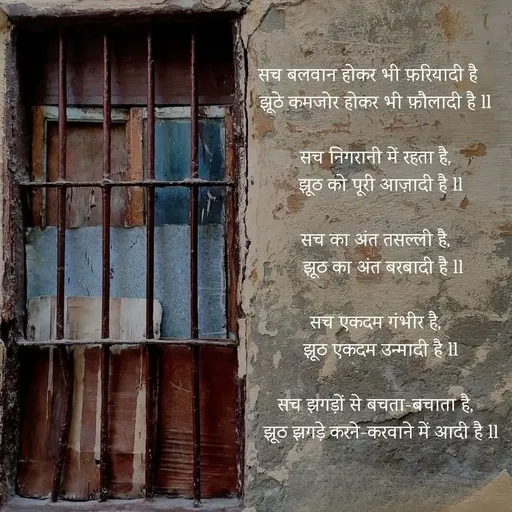 सच बलवान होकर भी फ़रियादी है
झूठे कमजोर होकर भी फ़ौलादी है ll
सच निगरानी में रहता है,
झूठ को पूरी आज़ादी है ll
सच का अंत तसल्ली है,
झूठ का अंत बरबादी है ll
सच एकदम गंभीर है,
झूठ एकदम उन्मादी है ll
सच झगड़ों से बचता-बचाता है,
झूठ झगड़े करने-करवाने में आदी है ll